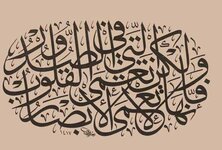 فإنها لا تعمى الأبصار ولكن تعمى القلوب التي في الصدور